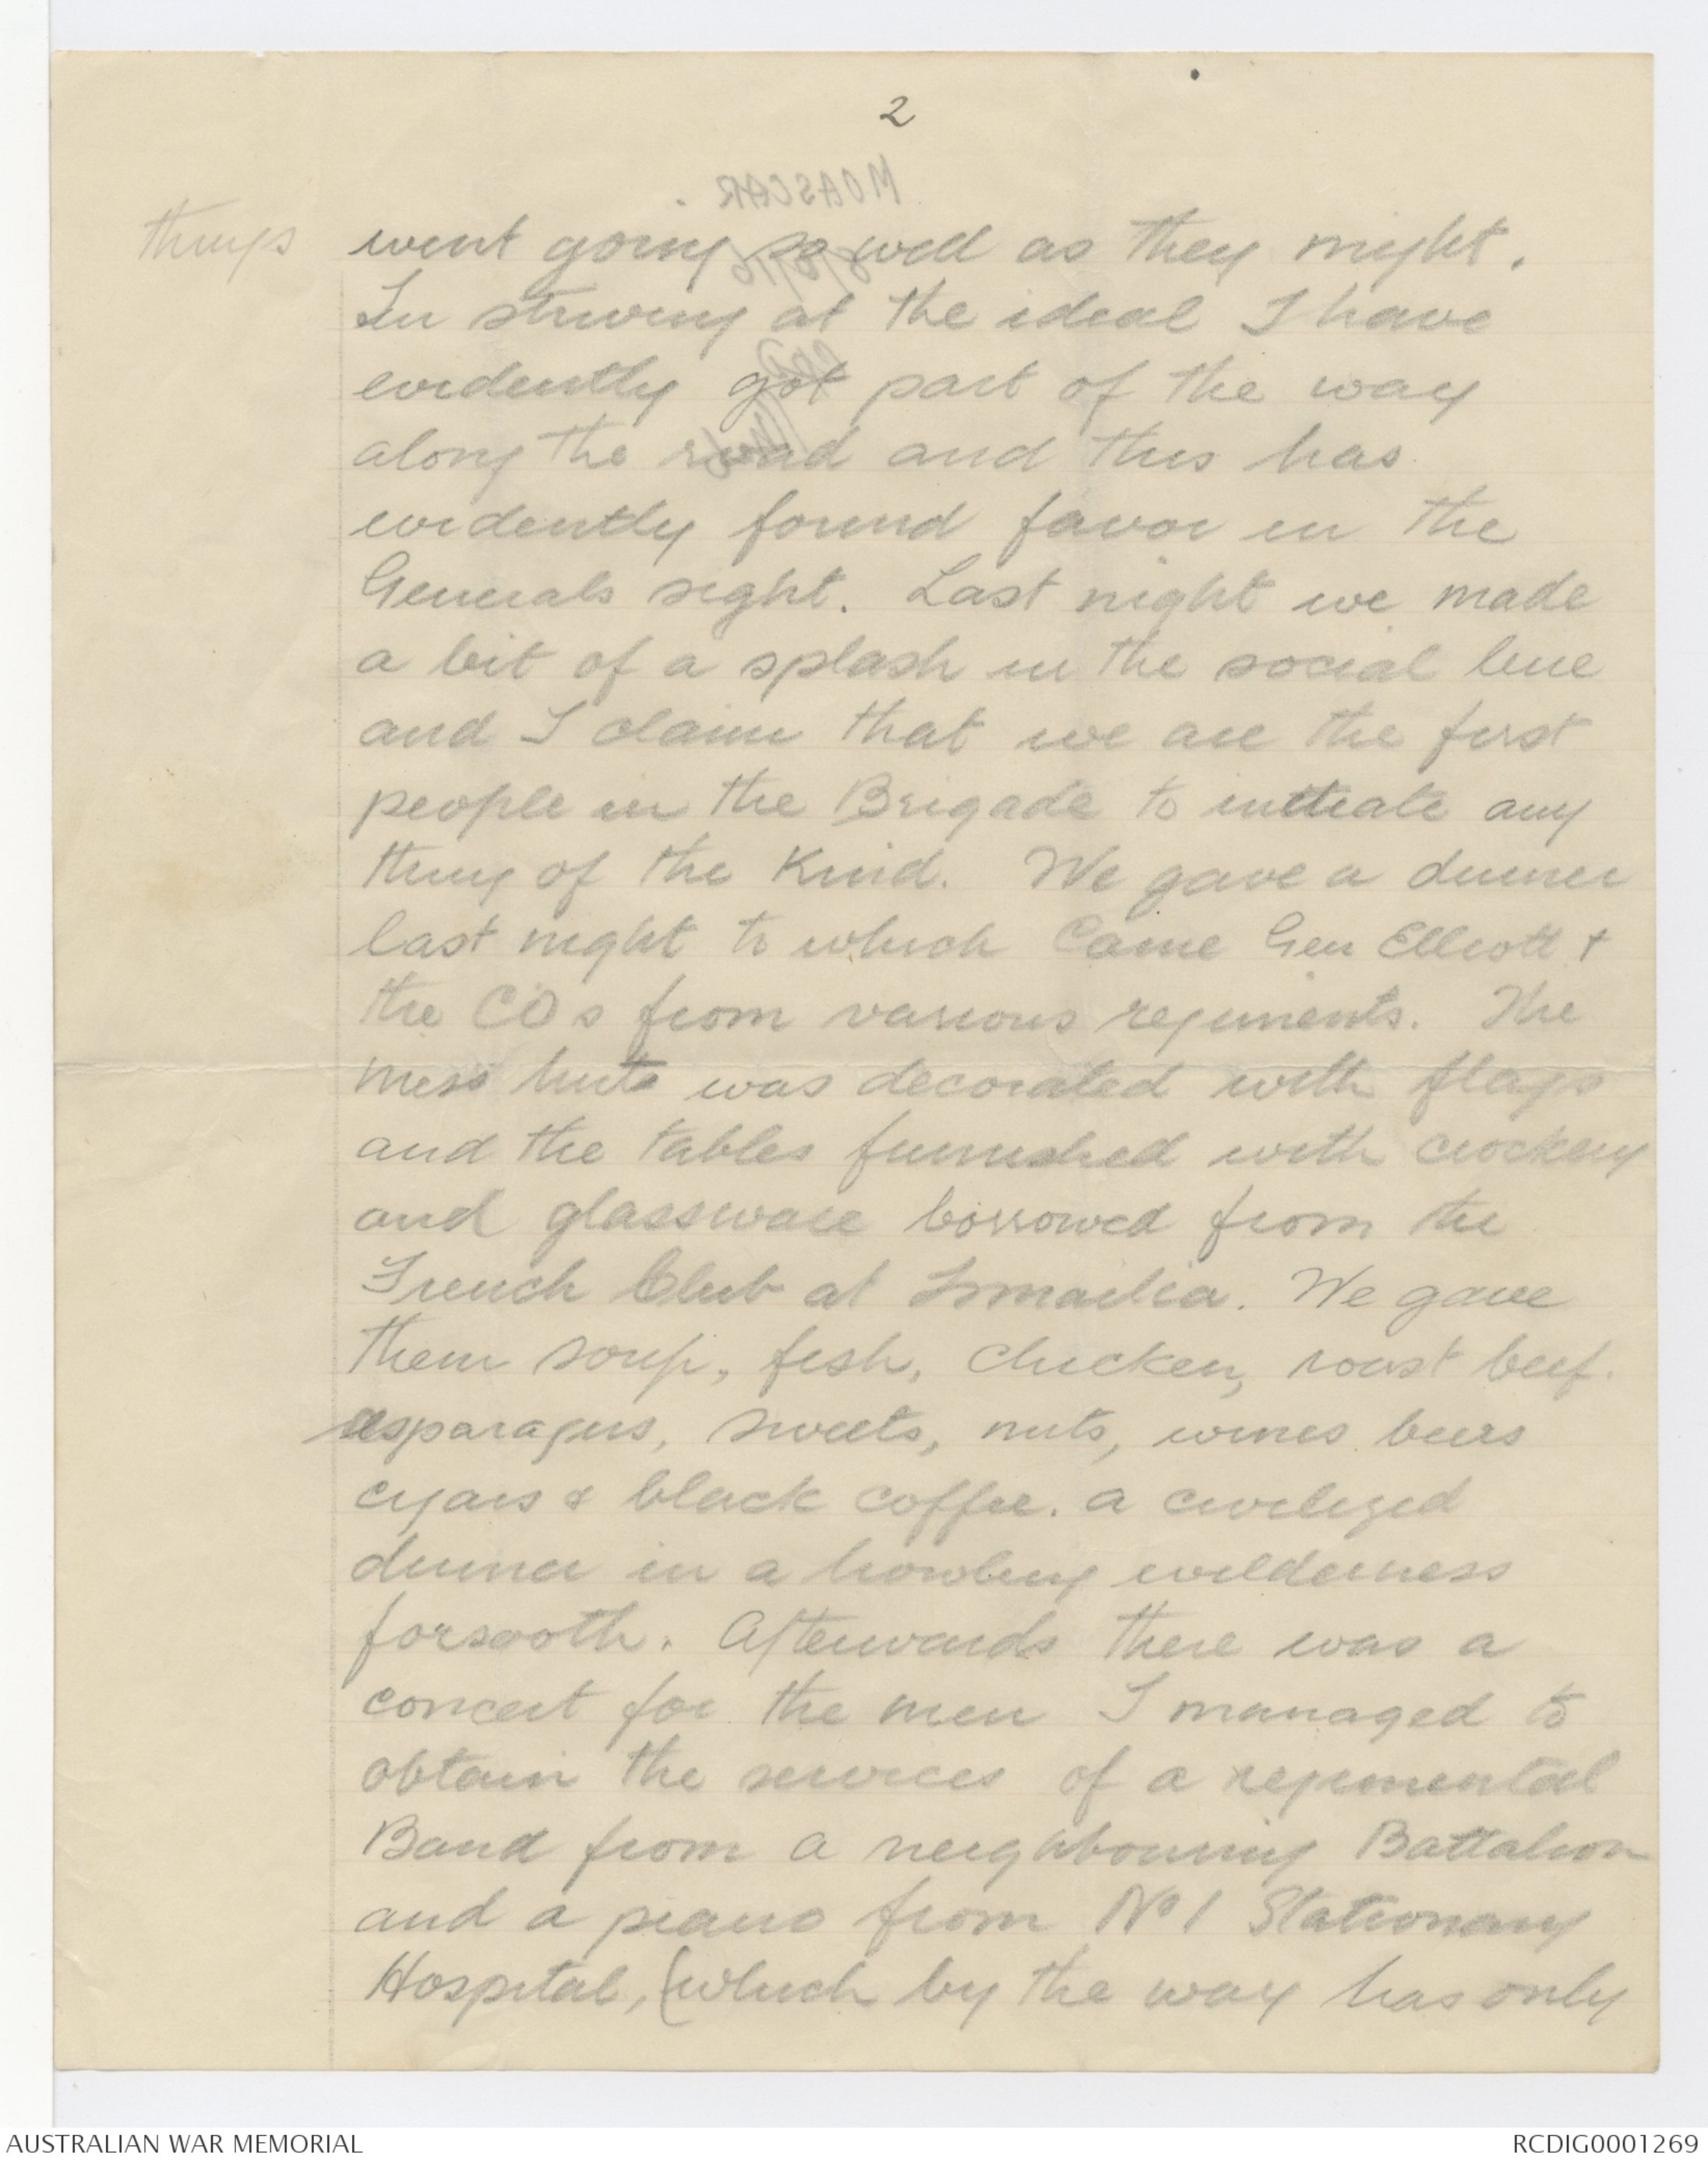 2
MOASCAR.
things went going so well as they might.
In striving at the ideal I have
evidently got part of the way
along the road and this has
evidently found favor in the
Generals sight. Last night we made
a bit of a splash in the social line
and I claim that we are the first
people in the Brigade to initiate any
thing of the kind. We gave a dinner
last night to which came Gen Elliott &
the COs from various regiments. The
mess hut was decorated with flags
and the tables furnished with crockery
and glassware borrowed from the
French Club at Ismailia. We gave
them soup, fish, chicken, roast beef.
asparagus, sweets, nuts, wines beers
cigars & black coffee. a civilized
dinner in a howling wilderness
forsooth. Afterwards there was a
concert for the men I managed to
obtain the services of a regimental
Band from a neighbouring Battalion
and a piano from No 1 Stationary
Hospital, (which by the way has only
AUSTRALIAN WAR MEMORIAL
RCDIG0001269